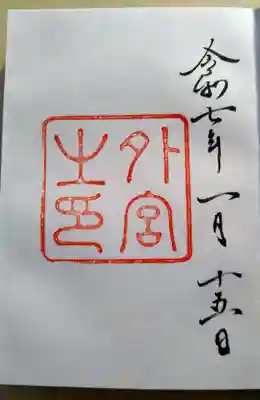 令和七年 一月 十五日
外宮
之印